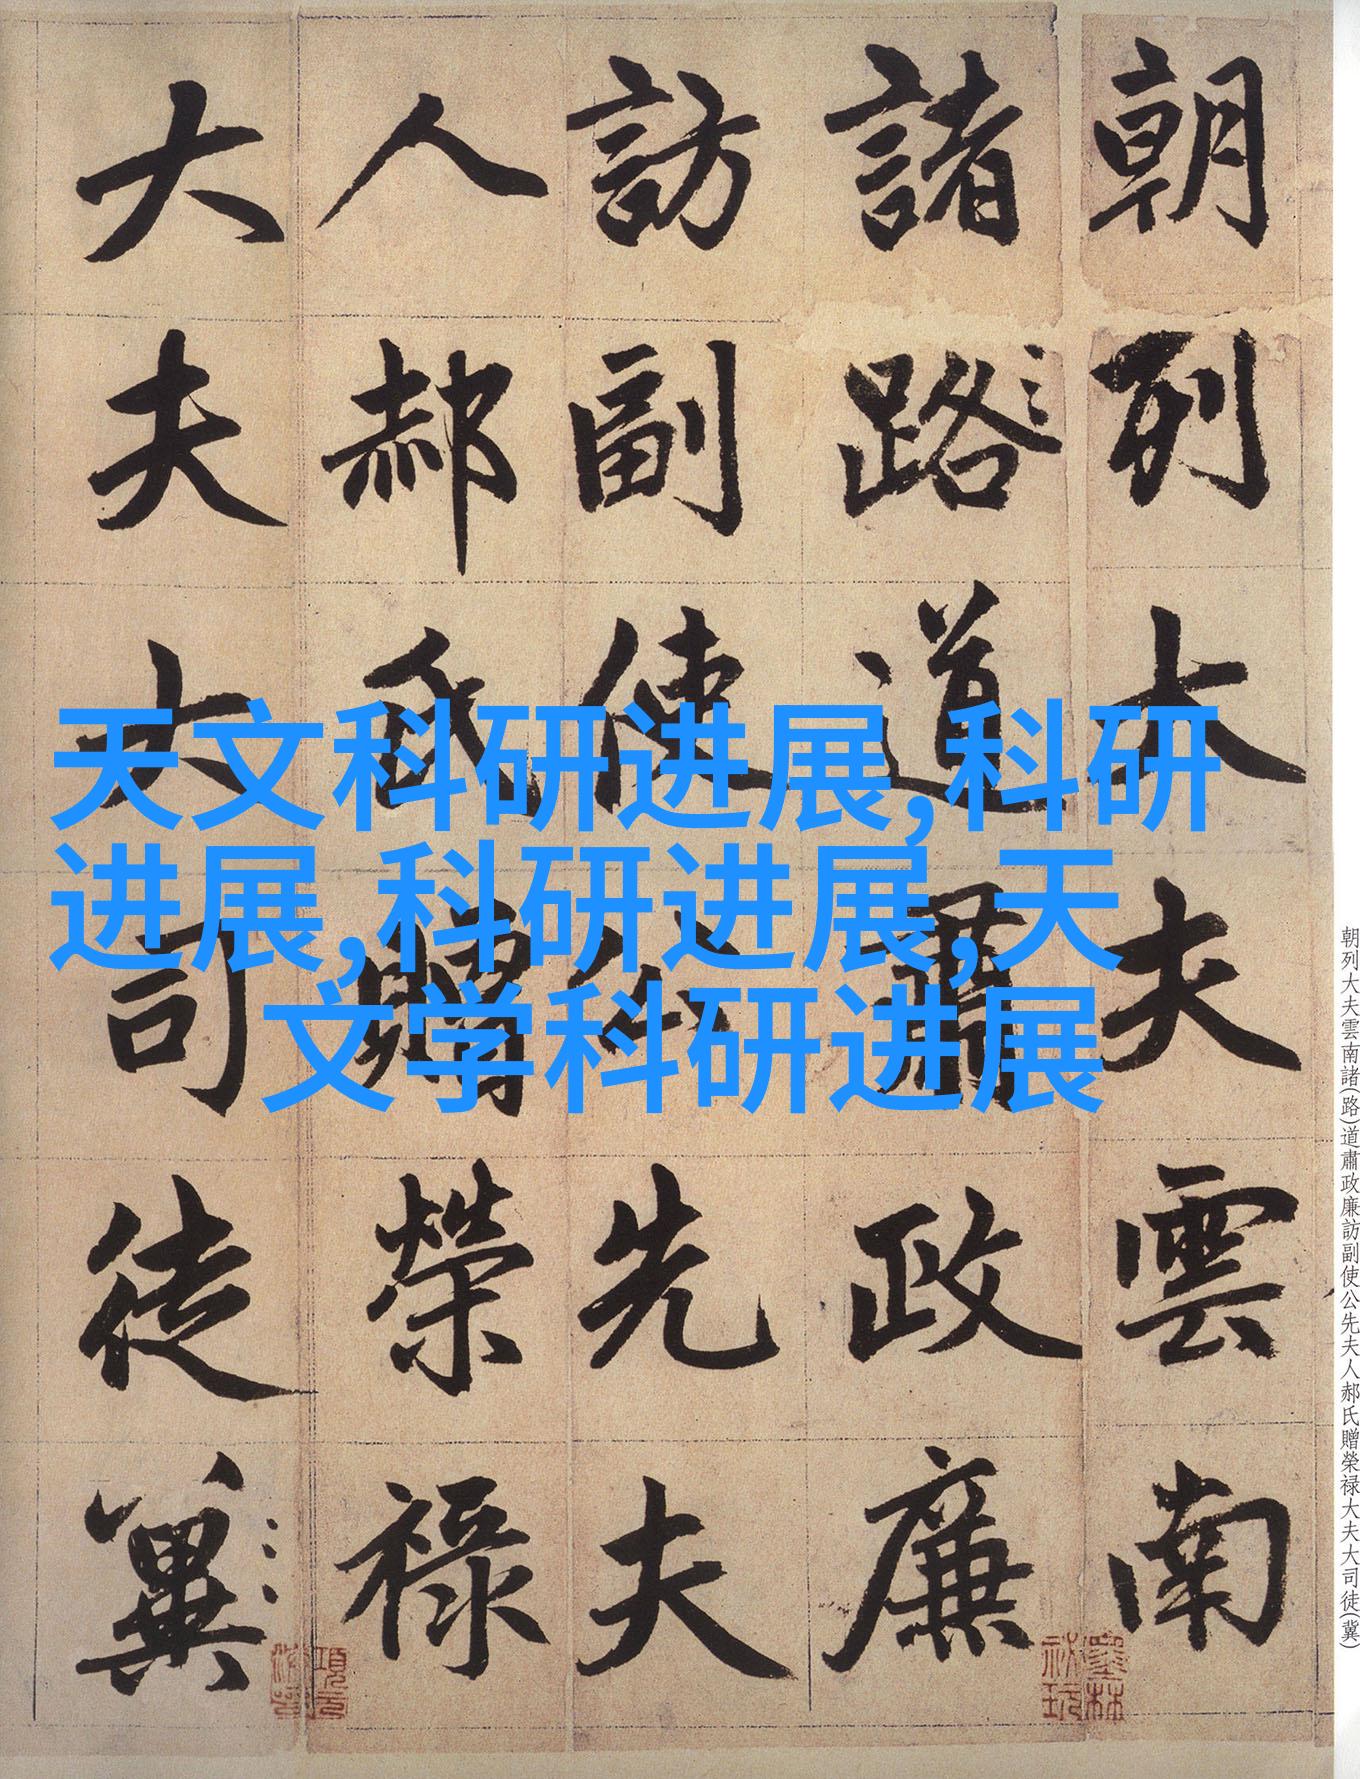 朝列大夫雲南
諸路道肅政廉
訪副使公先夫
人郝氏贈榮祿
大夫大司徒冀
天文科研进展,科研
进展,科研进展,天
文学科研进展
朝列大夫雲南諸(路)道肅政廉訪副使公先夫人郝氏贈榮禄大夫大司徒(冀)